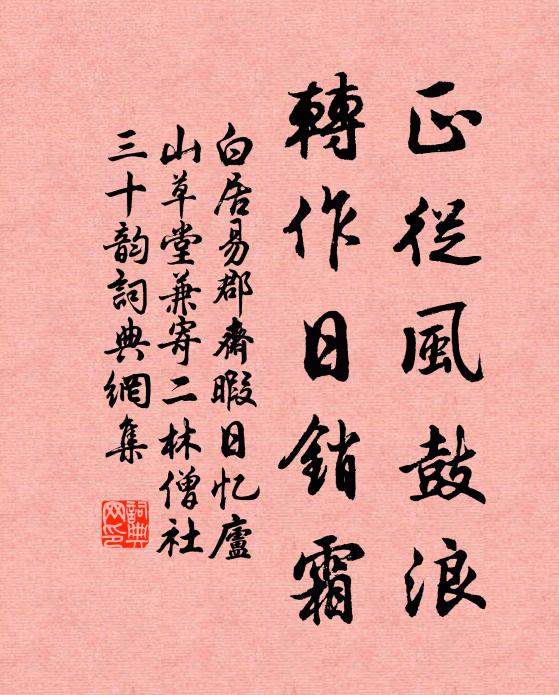 正從風鼓浪
轉作日銷霜
白居易郡齋暇日忆廬
山草堂兼寄二林僧社
三十韵詞典網集
詞典网印